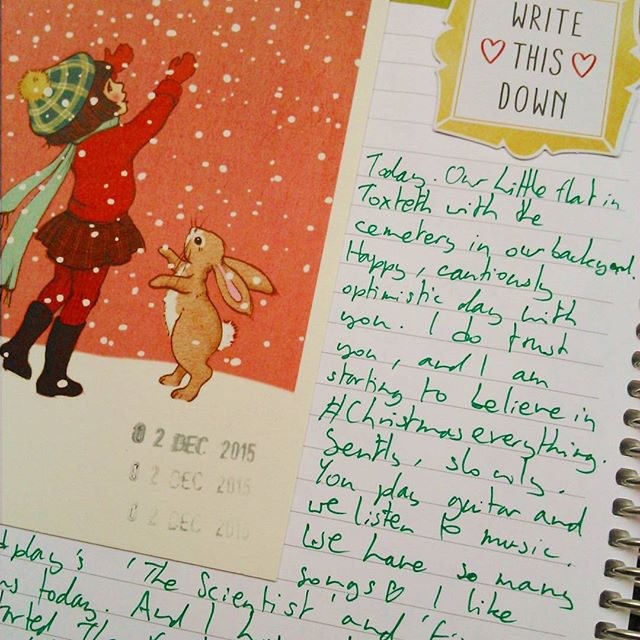 WRITE
THIS
DOWN
Today. Our little flat in
Toxteth with the
cemetery in our backyard.
Happy, cautiously
optimistic day with
you. I do trust
you, and I am
starting to believe in
#Christmaseverything.
Gently, slowly.
You play guitar and
we listen to music.
We have so many
songs♡ I like
02 DEC 2015
02 DEC 2015
02 DEC 2015
play's 'The Scientist' and
today. And I